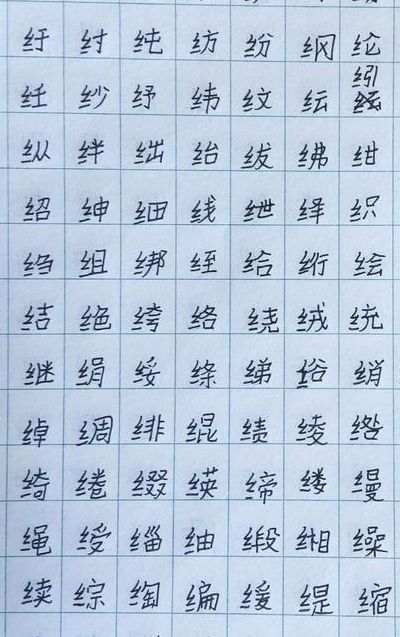 纡 纣 纯 纺 纷 纲 纶
纴 纱 纾 纬 纹 纭 纼
纵 绊 绌 绐 绂 绋 绀
绍 绅 细 线 绁 绎 织
绉 组 绑 绖 给 绗 绘
结 绝 绔 络 绕 绒 统
继 绢 绥 绦 绨 绤 绡
绰 绸 绯 绲 绩 绫 绺
绮 绻 缀 绬 缔 缕 缦
绳 绶 缁 䌷 缎 缃 缲
续 综 绹 编 缓 缇 缩